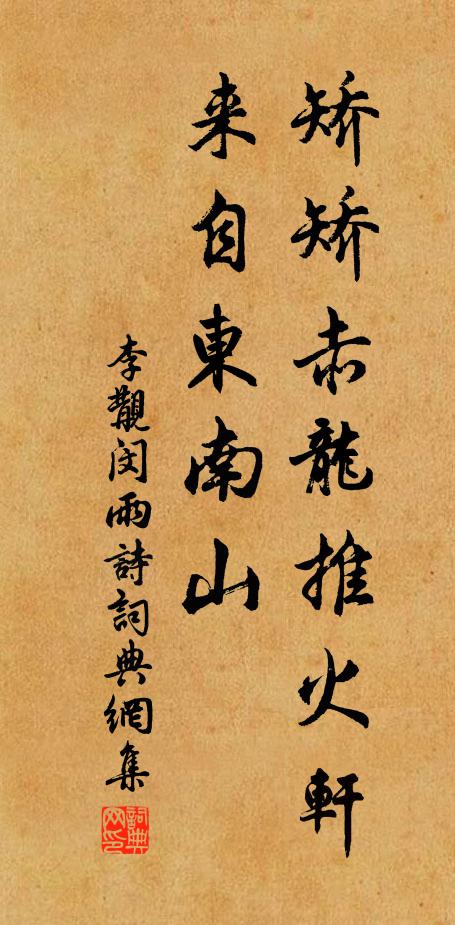 矫矫赤龍推火軒
来自東南山
李覯閔雨詩詞典網集
詞典网印